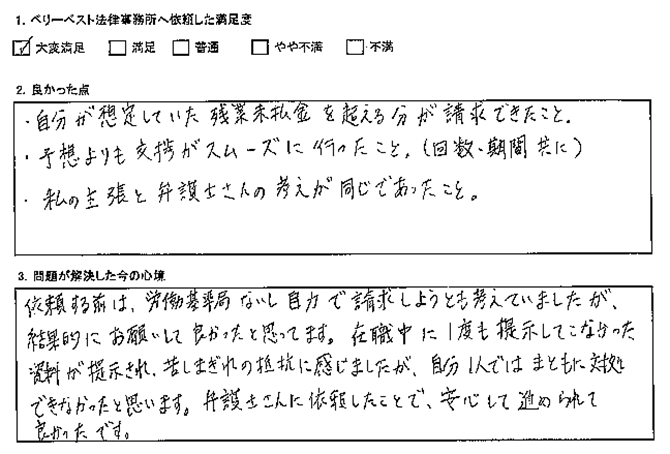 1. ベリーベスト法律事務所へ依頼した満足度
☑ 大変満足 □ 満足 □ 普通 □ やや不満 □ 不満
2. 良かった点
・自分が想定していた残業未払金を超える分が請求できたこと。
・予想よりも交捗がスムーズに行ったこと。(回数・期間共に)
・私の主張と弁護士さんの考えが同じであったこと。
3. 問題が解決した今の心境
依頼する前は、労働基準局ないし自力で請求しようとも考えていましたが、
結果的にお願いして良かったと思ってます。在職中に1度も提示してこなかった
資料が提示され、苦しまぎれの抵抗に感じましたが、自分1人ではまともに対処
できなかったと思います。弁護士さんに依頼したことで、安心して進められて
良かったです。